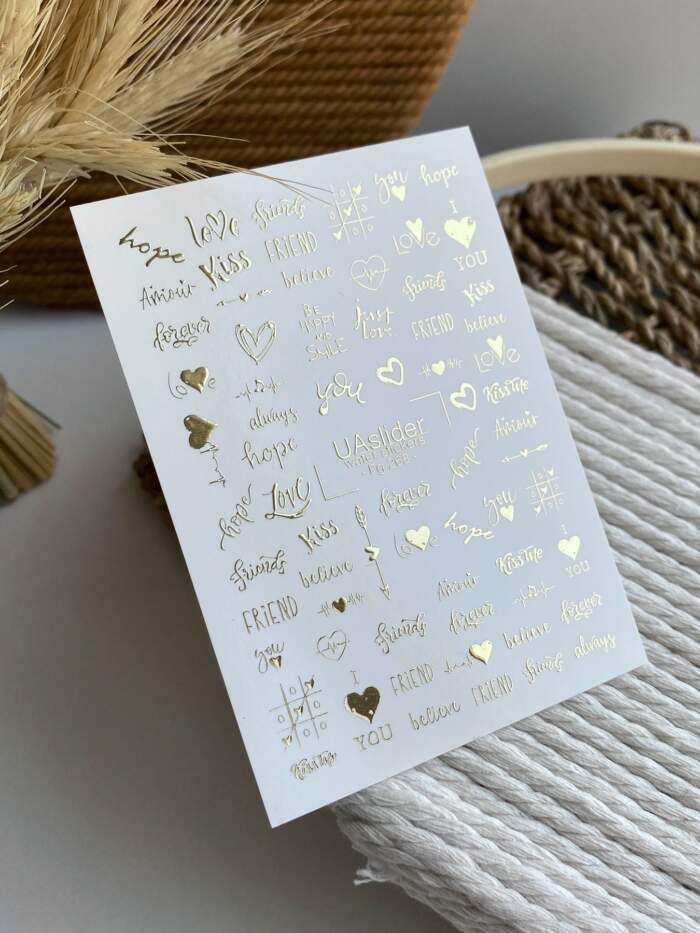 hope love friends you hope
Amour Kiss FRIEND LOVE I
believe YOU
forever BE HAPPY AND SMILE just love friends Kiss
FRIEND believe
you LOVE
always Kiss me
hope UAslider
water stickers
Amour
hope
hope LOVE forever
Kiss you
friends believe hope
Kiss me I
FRIEND Amour YOU
you friends forever
believe forever
I FRIEND
YOU believe FRIEND friends always
Kiss me